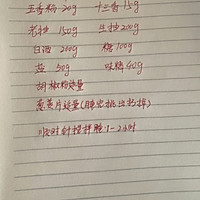 五香粉 20g 十三香 15g
老抄 150g 生抄 200g
白酒 200g 糖 100g
盐 50g 味精 40g
胡椒粉适量
葱姜片适量(腌出挑出扔掉)
顺时针搅拌腌1-2小时